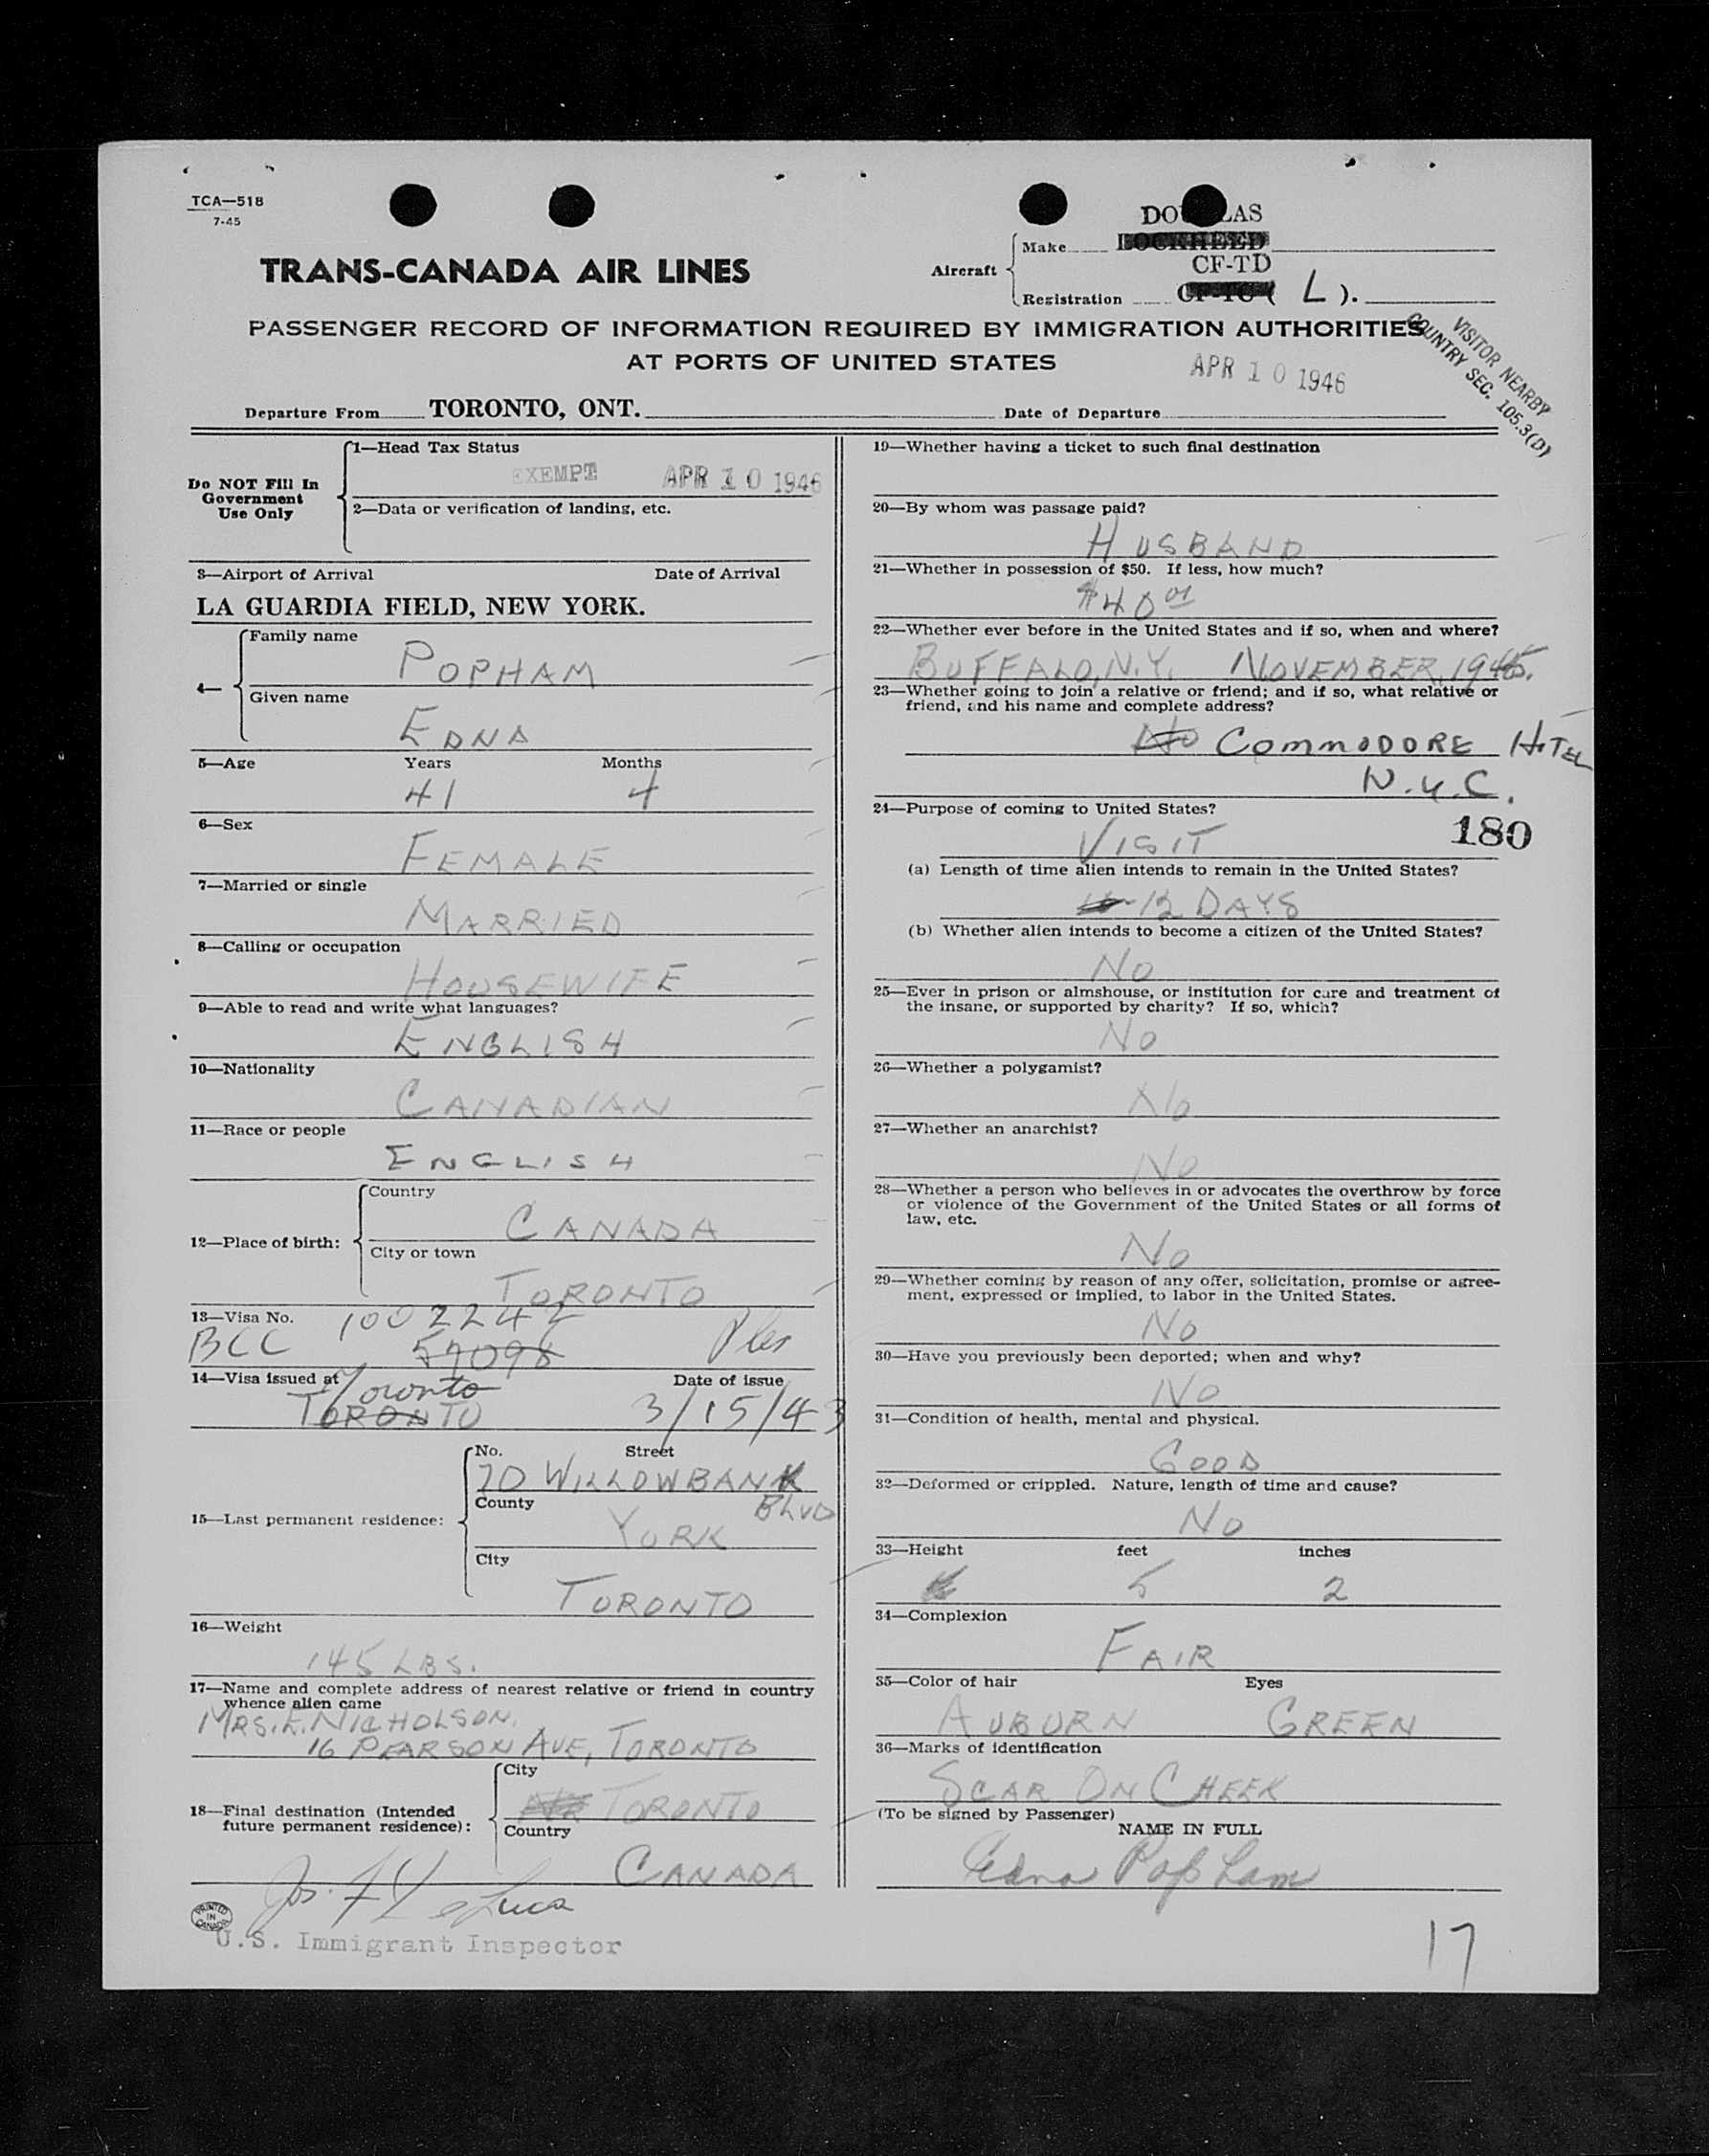 TCA—518
7-45
TRANS-CANADA AIR LINES
Aircraft
DOUGLAS
Make LOCKHEED
CF-TD
Registration CF-TC ( L ).
PASSENGER RECORD OF INFORMATION REQUIRED BY IMMIGRATION AUTHORITIES
AT PORTS OF UNITED STATES
APR 10 1946
VISITOR NEARBY
COUNTRY SEC. 105.3(D)
Departure From TORONTO, ONT. Date of Departure
Do NOT Fill In
Government
Use Only
1—Head Tax Status
EXEMPT APR 10 1946
2—Data or verification of landing, etc.
3—Airport of Arrival Date of Arrival
LA GUARDIA FIELD, NEW YORK.
4—
Family name
POPHAM
Given name
EDNA
5—Age Years Months
41 4
6—Sex
FEMALE
7—Married or single
MARRIED
8—Calling or occupation
HOUSEWIFE
9—Able to read and write what languages?
ENGLISH
10—Nationality
CANADIAN
11—Race or people
ENGLISH
12—Place of birth:
Country
CANADA
City or town
TORONTO
13—Visa No. 1002242
BCC 57098
14—Visa issued at Toronto Date of issue
TORONTO 3/15/43
15—Last permanent residence:
No. Street
70 WILLOWBANK
County BLVD
YORK
City
TORONTO
16—Weight
145 LBS.
17—Name and complete address of nearest relative or friend in country
whence alien came
MRS. E. NICHOLSON.
16 PEARSON AVE, TORONTO
18—Final destination (Intended
future permanent residence):
City
TORONTO
Country
CANADA
PRINTED
IN
CANADA
U.S. Immigrant Inspector
19—Whether having a ticket to such final destination
20—By whom was passage paid?
HUSBAND
21—Whether in possession of $50. If less, how much?
$40
22—Whether ever before in the United States and if so, when and where?
BUFFALO, N.Y. NOVEMBER, 1945.
23—Whether going to join a relative or friend; and if so, what relative or
friend, and his name and complete address?
No COMMODORE HOTEL
N.Y.C.
24—Purpose of coming to United States?
VISIT 180
(a) Length of time alien intends to remain in the United States?
12 DAYS
(b) Whether alien intends to become a citizen of the United States?
NO
25—Ever in prison or almshouse, or institution for care and treatment of
the insane, or supported by charity? If so, which?
NO
26—Whether a polygamist?
NO
27—Whether an anarchist?
NO
28—Whether a person who believes in or advocates the overthrow by force
or violence of the Government of the United States or all forms of
law, etc.
NO
29—Whether coming by reason of any offer, solicitation, promise or agree-
ment, expressed or implied, to labor in the United States.
NO
30—Have you previously been deported; when and why?
NO
31—Condition of health, mental and physical.
GOOD
32—Deformed or crippled. Nature, length of time and cause?
NO
33—Height feet inches
5 2
34—Complexion
FAIR
35—Color of hair Eyes
AUBURN GREEN
36—Marks of identification
SCAR ON CHEEK
(To be signed by Passenger)
NAME IN FULL
Edna Popham
17